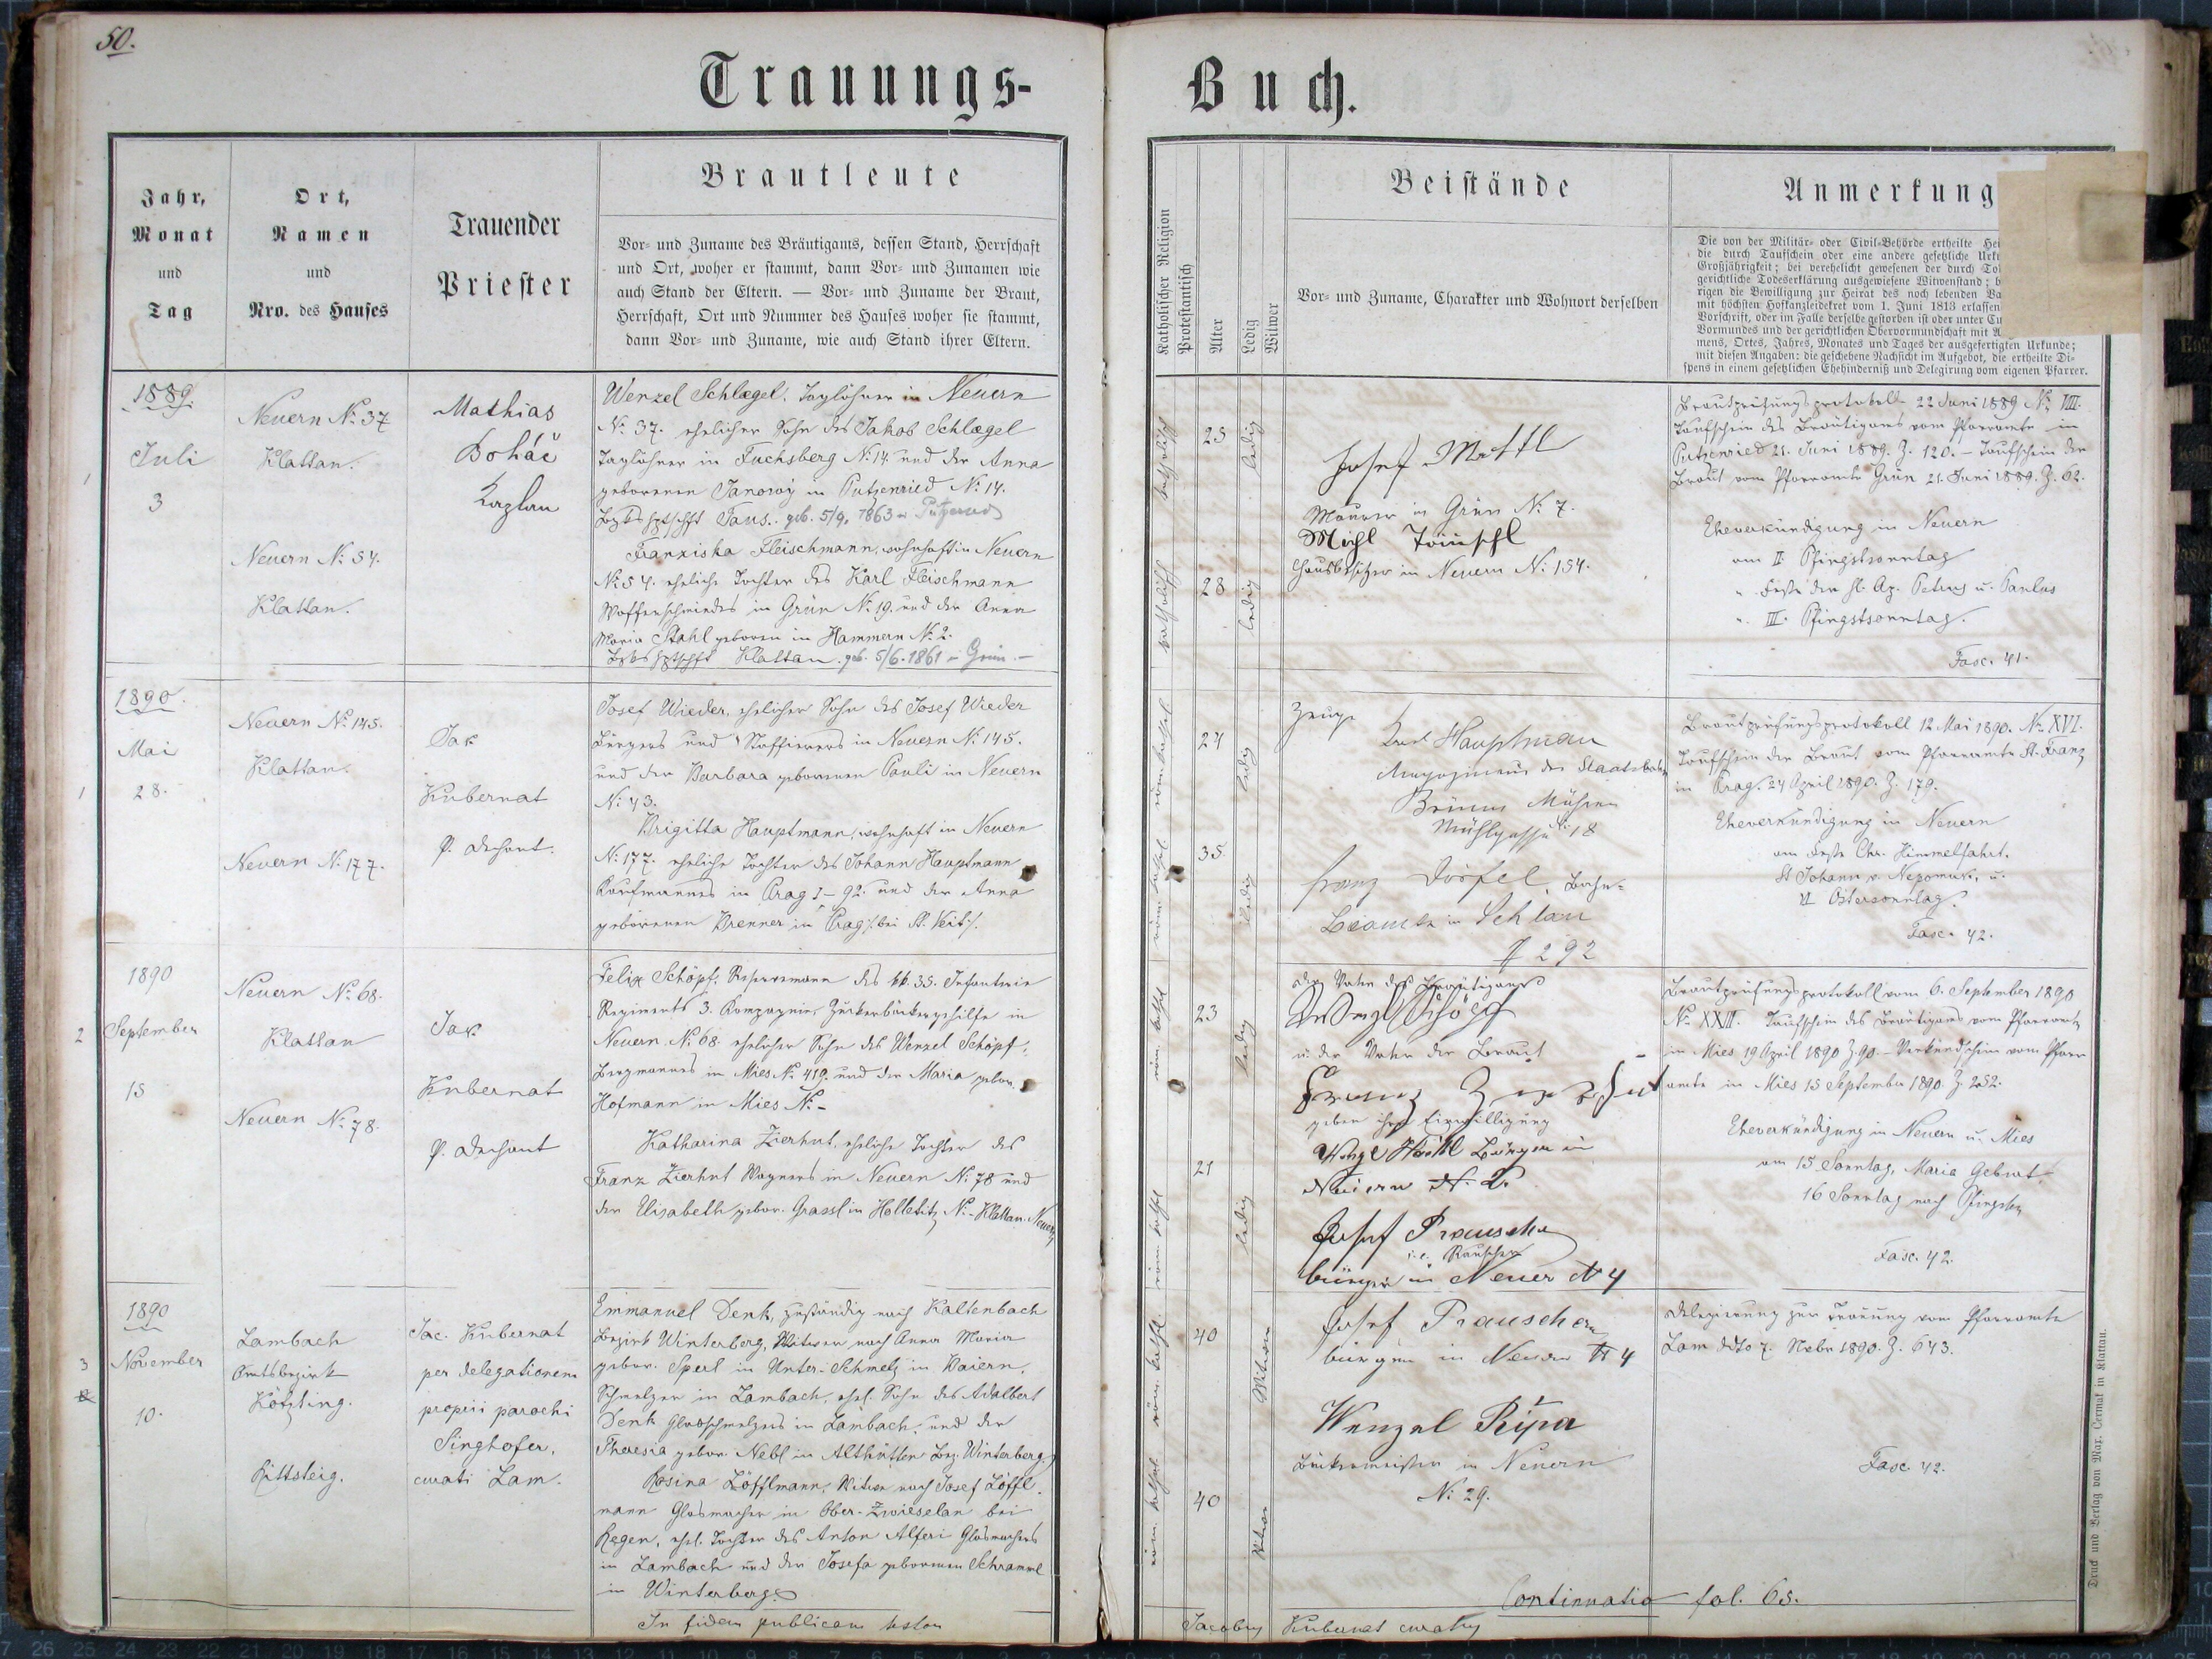 50.
Trauungs-
Jahr,
Monat
und
Tag
Ort,
Namen
und
Nro. des Hauses
Trauender
Priester
Brautleute
Vor- und Zuname des Bräutigams, dessen Stand, Herrschaft
und Ort, woher er stammt, dann Vor- und Zunamen wie
auch Stand der Eltern. — Vor- und Zuname der Braut,
Herrschaft, Ort und Nummer des Hauses woher sie stammt,
dann Vor- und Zuname, wie auch Stand ihrer Eltern.
1889.
Juli
3
Neuern No. 37
Klattau.
Neuern No. 54.
Klattau.
Mathias
Boháč
Kaplan
Wenzel Schlægel, Taglöhner in Neuern
No. 37. ehelicher Sohn des Jakob Schlægel
Taglöhner in Fuchsberg No. 14. und der Anna
geborenen Janowy in Putzenried No. 14.
Bzkshptschft Taus. geb. 5/9. 1863 in Putzenried
Franziska Fleischmann, wohnhaft in Neuern
No. 54. eheliche Tochter des Karl Fleischmann
Waffenschmiedes in Grün No. 19. und der Anna
Maria Stahl geboren in Hammern No. 2.
Bzkshptschft Klattau. geb. 5/6. 1861 in Grün. -
1890.
Mai
28.
Neuern No. 145.
Klattau.
Neuern No. 177.
Jak
Kubernat
P. Dechant.
Josef Wieder, ehelicher Sohn des Josef Wieder
Bürgers und Staffierers in Neuern No. 145.
und der Barbara geborenen Pauli in Neuern
No. 43.
Brigitta Hauptmann, wohnhaft in Neuern
No. 177. eheliche Tochter des Johann Hauptmann
Kaufmannes in Prag I-92. und der Anna
geborenen Brenner in Prag /. bei St. Veit /.
1890
September
15
Neuern No. 68.
Klattau
Neuern No. 78.
Jak
Kubernat
P. Dechant
Felix Schöpf, Reservemann des kk. 35. Infanterie
Regiments 3. Kompagnie, Zuckerbäckergehilfe in
Neuern No. 68 ehelicher Sohn des Wenzel Schöpf,
Bergmannes in Mies No. 419. und der Maria gebor.
Hofmann in Mies No. -
Katharina Zierhut, eheliche Tochter des
Franz Zierhut Wagners in Neuern No. 78 und
der Elisabeth gebor. Grassl in Holletitz No. - Klattau. Neuern
1890
November
10.
Lambach
Amtsbezirk
Kötzting.
Rittsteig.
Jac. Kubernat
per delegationem
proprii parochi
Singhofer,
curati Lam.
Emmanuel Denk, zuständig nach Kaltenbach
Bezirk Winterberg, Witwer nach Anna Maria
gebor. Sperl in Unter-Schmelz in Baiern,
Schmelzer in Lambach, ehel. Sohn des Adalbert
Denk Glasschmelzers in Lambach, und der
Theresia gebor. Nebl in Althütten Bez. Winterberg.
Rosina Löfflmann, Witwe nach Josef Löffl-
mann Glasmacher in Ober-Zwieselau bei
Regen, ehel. Tochter des Anton Alferi Glasmachers
in Lambach und der Josefa geborenen Schramml
in Winterberg.
In fidem publicam testor
Buch.
Katholischer Religion
Protestantisch
Alter
Ledig
Witwer
Beistände
Vor- und Zuname, Charakter und Wohnort derselben
Anmerkung
Die von der Militär- oder Civil-Behörde ertheilte Hei
die durch Taufschein oder eine andere gesetzliche Urk
Großjährigkeit; bei verehelicht gewesenen der durch To
gerichtliche Todeserklärung ausgewiesene Witwenstand; b
rigen die Bewilligung zur Heirat des noch lebenden Va
mit höchsten Hofkanzleidekret vom 1. Juni 1813 erlassen
Vorschrift, oder im Falle derselbe gestorben ist oder unter Cu
Vormundes und der gerichtlichen Obervormundschaft mit A
mens, Ortes, Jahres, Monates und Tages der ausgefertigten Urkunde;
mit diesen Angaben: die geschehene Nachsicht im Aufgebot, die ertheilte Di-
spens in einem gesetzlichen Ehehinderniß und Delegirung vom eigenen Pfarrer.
katholisch
25
ledig
katholisch
28
ledig
Josef
Maurer in Grün No. 7.
Michl
Hausbesitzer in Neuern No. 154.
Brautprüfungsprotokoll 22 Juni 1889 No. VIII.
Taufschein des Bräutigams vom Pfarramte in
Putzenried 21. Juni 1889. Z. 120. - Taufschein der
Braut vom Pfarramte Grün 21. Juni 1889. Z. 62.
Eheverkündigung in Neuern
am II. Pfingstsonntag
" Feste der hl. Ap. Petrus u. Paulus
". III. Pfingstsonntag.
Fasc. 41.
24
ledig
35.
ledig
Zeuge
Karl Hauptman
der Staatsbahn
Brünn Mähren
Mühlgasse No. 18
Franz Dörfel, Bahn-
Beamte in Schlan
# 292
Brautprüfungsprotokoll 12 Mai 1890. No. XVI.
Taufschein der Braut vom Pfarramte St. Franz
in Prag. 24 April 1890. Z. 179.
Eheverkündigung in Neuern
am Feste Chr. Himmelfahrt.
St Johann v. Nepomuk, u.
Ostersonntag.
Fasc. 42.
23
ledig
21
ledig
der Vater des Bräutigams
Wenzl Schöpf
u. der Vater der Braut
Franz Zierhut
geben ihre Einwilligung
Bürger in
Neuern N. 2.
Josef Prauscher
i. e. Rauscher
bürger in Neuer N 4
Brautprüfungsprotokoll vom 6. September 1890
No. XXII. Taufschein des Bräutigams vom Pfarramte
in Mies 19 April 1890 Z. 90. - Verkündschein vom Pfarr
amte in Mies 15 September 1890. Z. 252.
Eheverkündigung in Neuern u. Mies
am 15 Sonntag, Maria Geburt,
16 Sonntag nach Pfingsten
Fasc. 42.
40
Witwer
40
Witwe
Josef Prauscher
bürger in Neuern N 4
Wenzel Řípa
Bäckermeister in Neuern
No. 29.
Delegierung zur Trauung vom Pfarramte
Lam ddto 7. Nebr 1890. Z. 643.
Fasc. 42.
Continuatio fol. 65.
Jacobus Kubernat curatus
Druck und Verlag von Max. Čermak in Klattau.